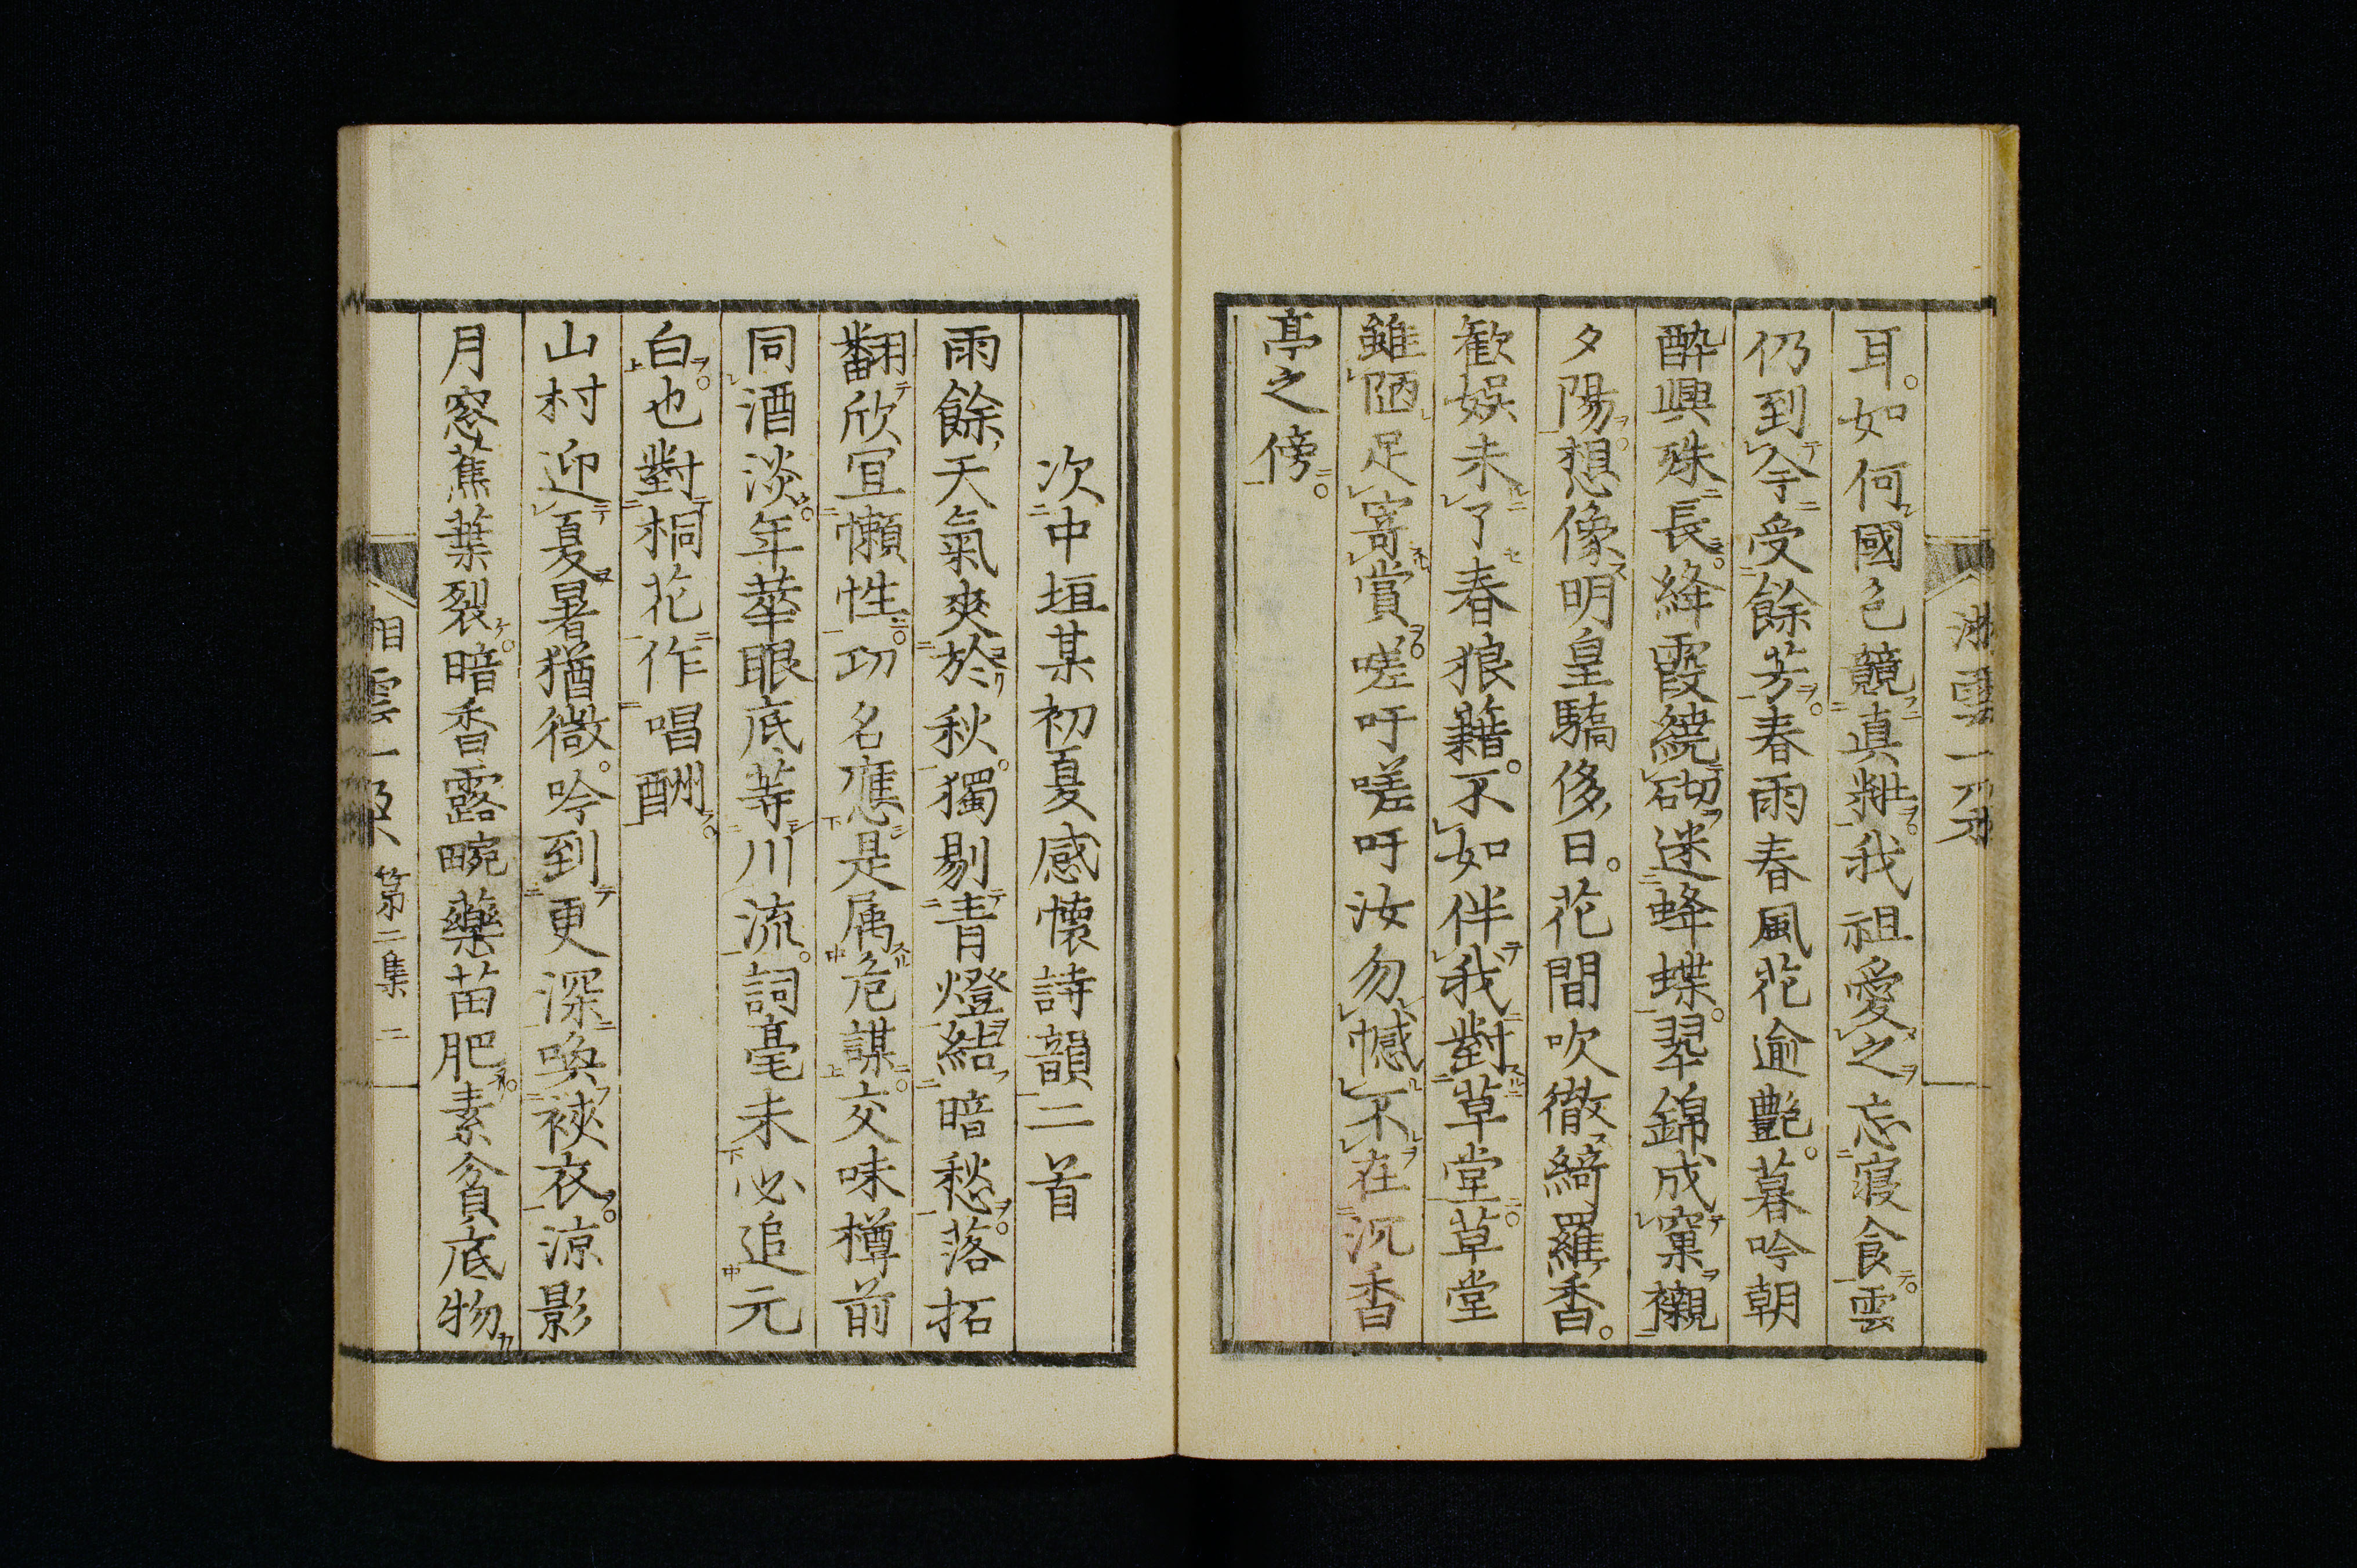 耳如何國色競真粃我祖愛之忘寢食雲
仍到今受餘芳春雨春風花逾艷暮吟朝
酔興殊長絳霞繞砌迷蜂蝶翠錦成窠襯
夕陽想像明皇驕侈日花間吹徹綺羅香
歓娯未了春狼籍不如伴我對草堂草堂
雖陋足寄賞嗟吁嗟吁汝勿憾不在沉香
亭之傍
次中垣某初夏感懷詩韻二首
雨餘天氣爽於秋獨剔青燈結暗愁落拓
翻欣宜懶性功名應是属危謀交味樽前
同酒淡年華眼底等川流詞毫未必追元
白也對桐花作唱酬
山村迎夏暑猶微吟到更深喚裌衣涼影
月窓蕉葉裂暗香露畹藥苗肥素貧底物
第二集 二